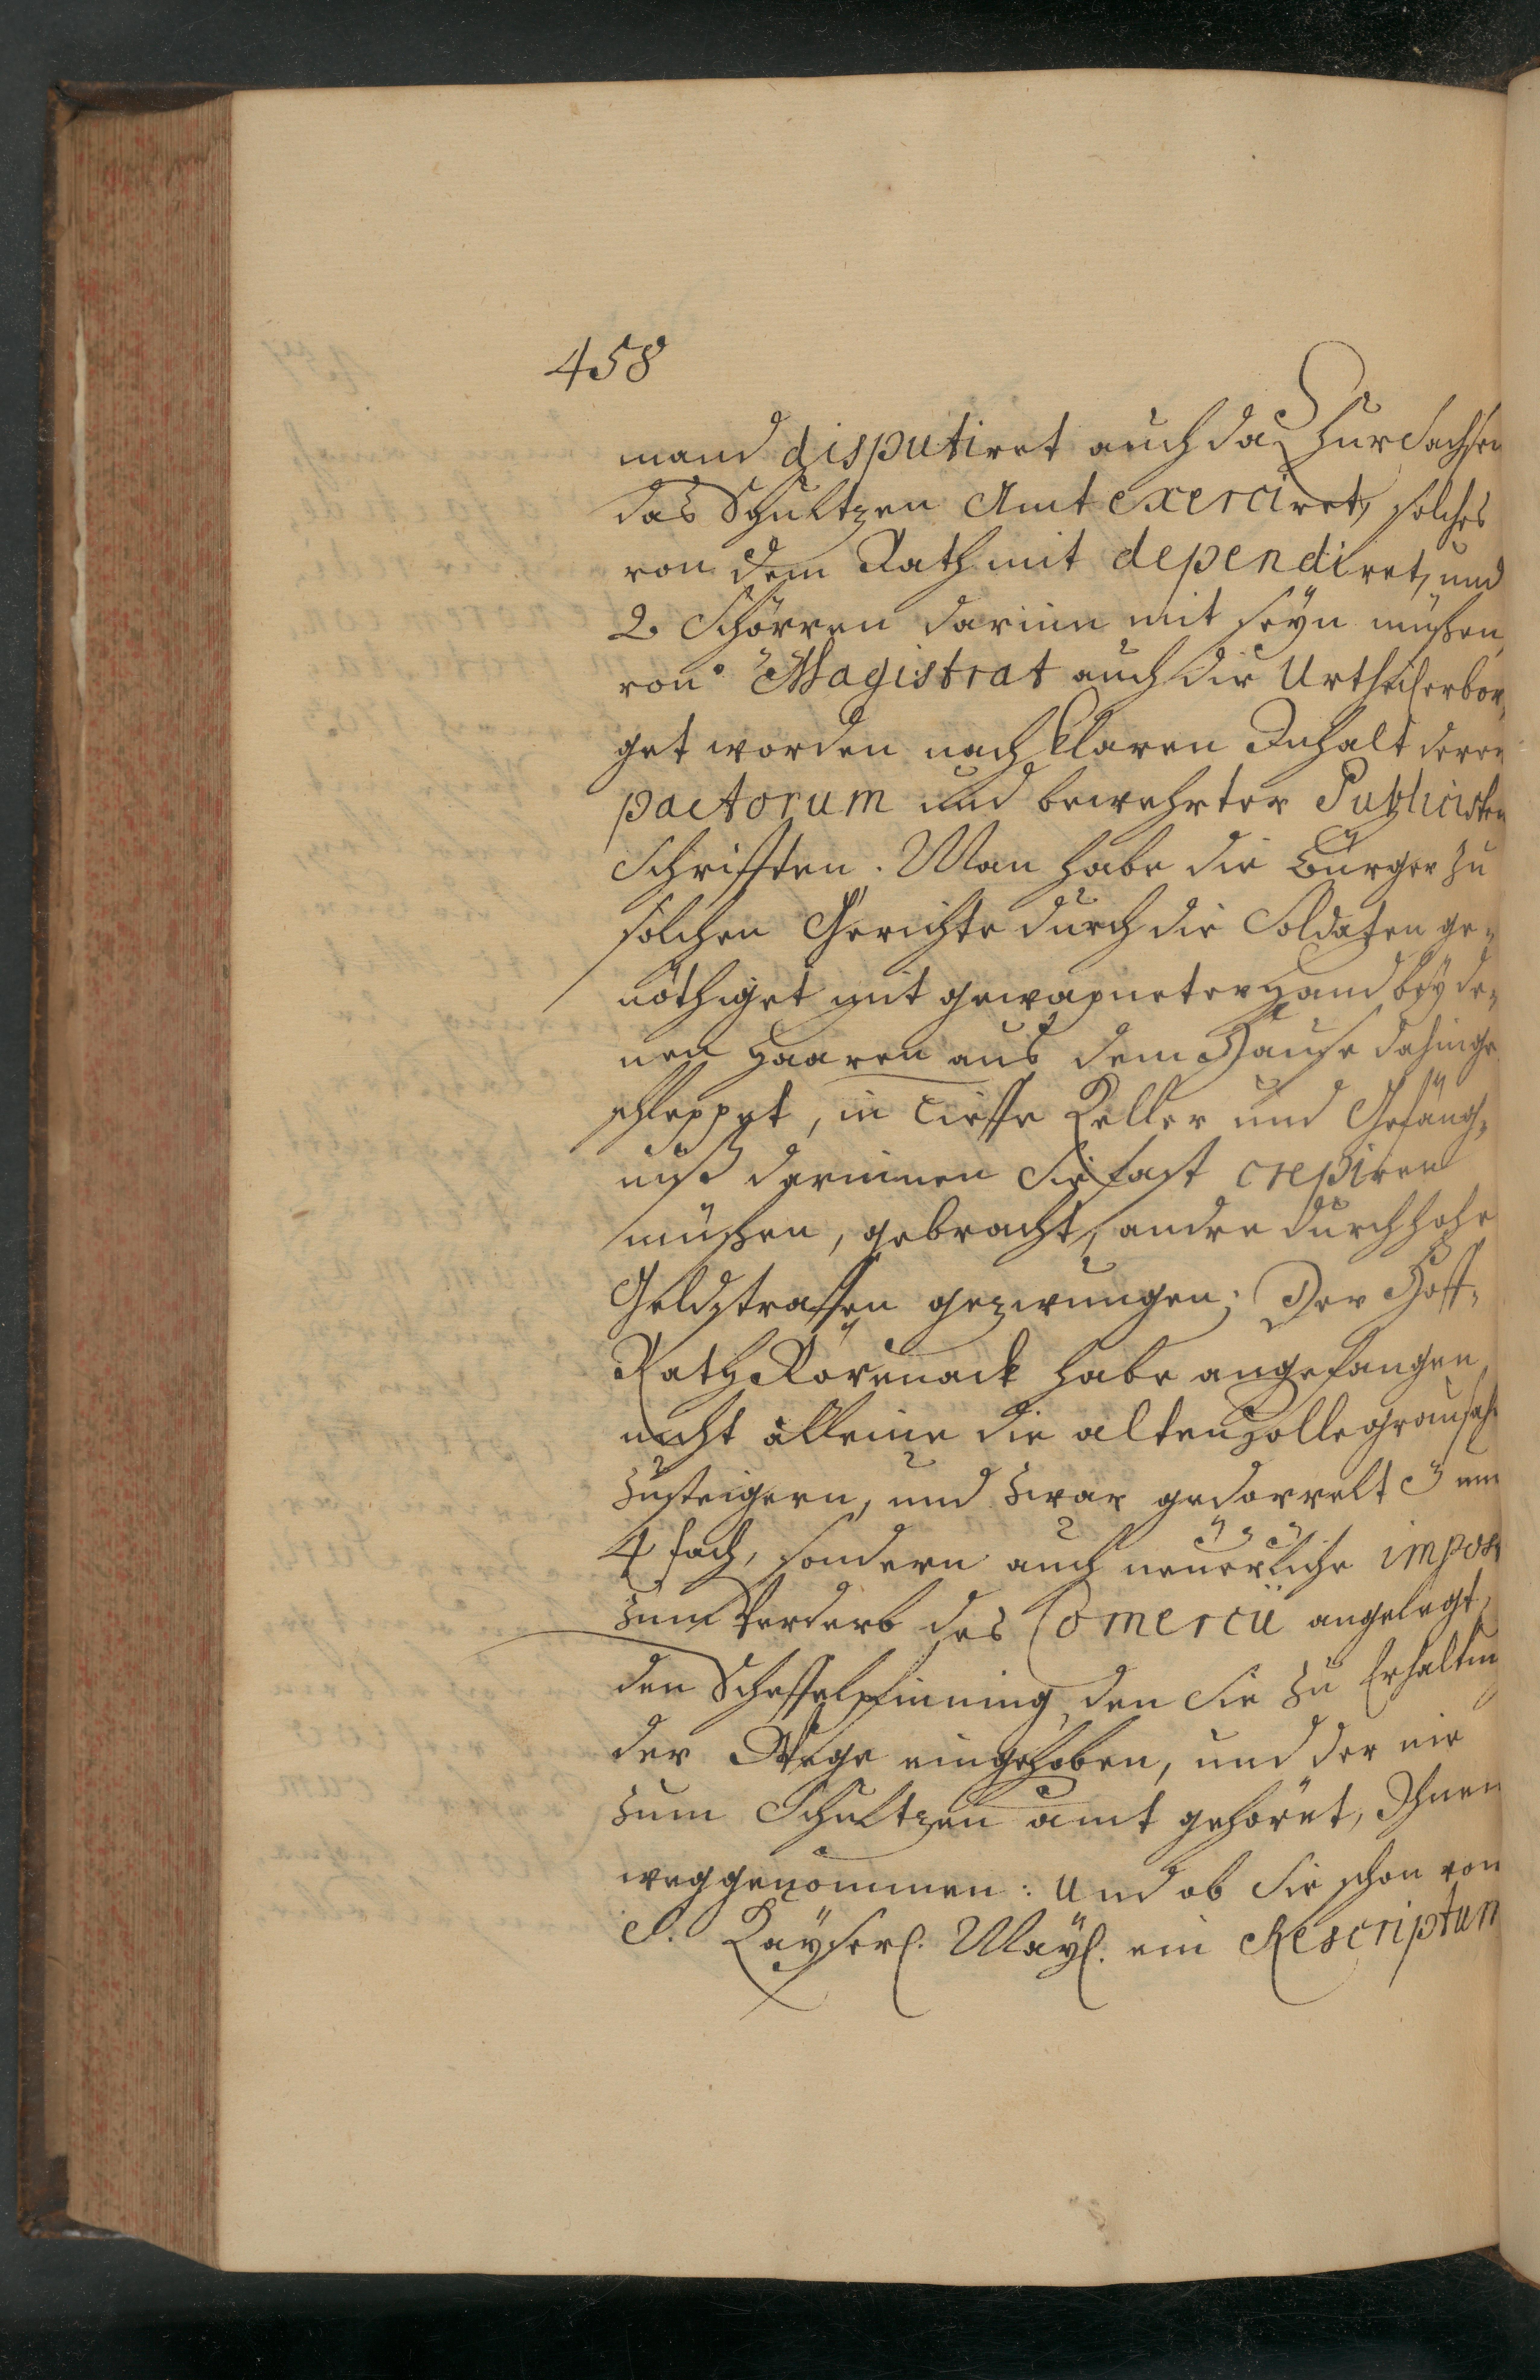 458
mand disputiret auch da Chur Sachsen
das Schultzen Amt exerciret, solches
von dem Rath mit dependiret, und
2. Schöppen darinn mit seyn müßen,
von Magistrat auch die Urtheil erbor,
get worden nach klaren Inhalt derer
pactorum und bewehrter Publicisten
Schrifften. Man habe die Bürger zu
solchen Gerichte durch die Soldaten ge„
nöthiget mit gewapneter Hand bey de„
nen Haaren aus dem Hause dahinge
schleppet, in tieffe Keller und Gefäng„
niß darinnen Sie fast crepiren
müßen, gebracht, andre durch hohe
Geldstraffen gezwungen; Der Hoff„
Rath habe angefangen,
nicht alleine die alten Zolle grausahm
zusteigern, und zwar gedoppelt 3 und
4 fach, sondern auch neuerliche impost
zum Verderb des Comercii angelegt,
den Scheffelpfinning, den Sie zu Erhaltung
der Wege eingehoben, und der nie
zum Schultzen amt gehöret, Ihnen
weggenommen: Und ob Sie schon von
S. Kayserl. Mayl. ein Rescriptum